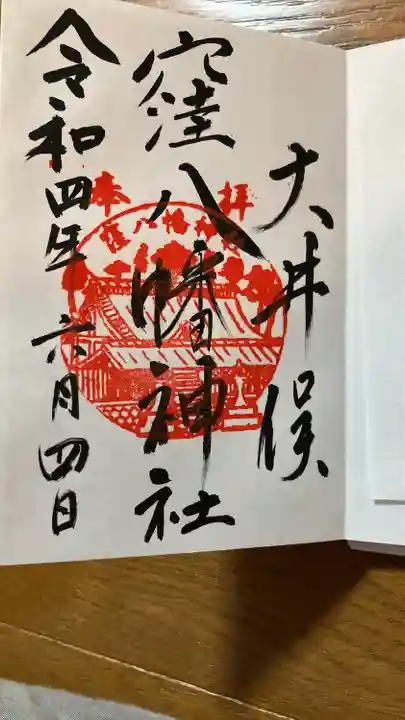 大井俣
窪八幡神社
令和四年六月四日
奉拝
窪八幡神